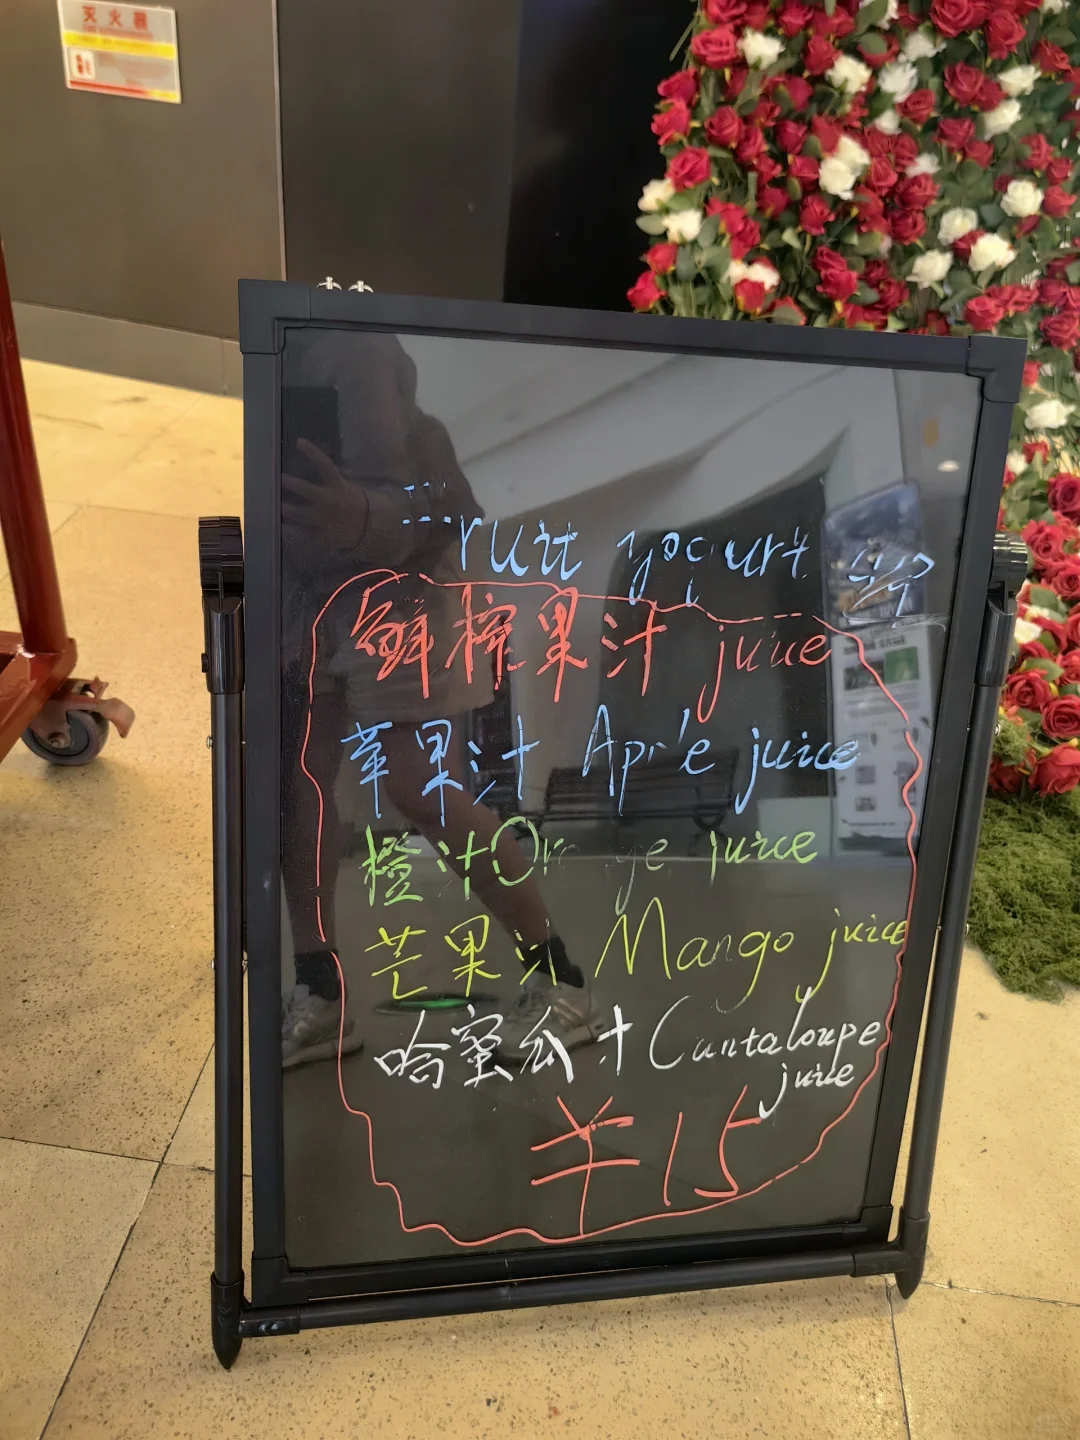 灭火器
ruit yogurt
鲜榨果汁 juice
苹果汁 Apr'e juice
橙汁 Orge juice
芒果汁 Mango juice
哈蜜瓜汁 Cantaloupe
juice
¥15